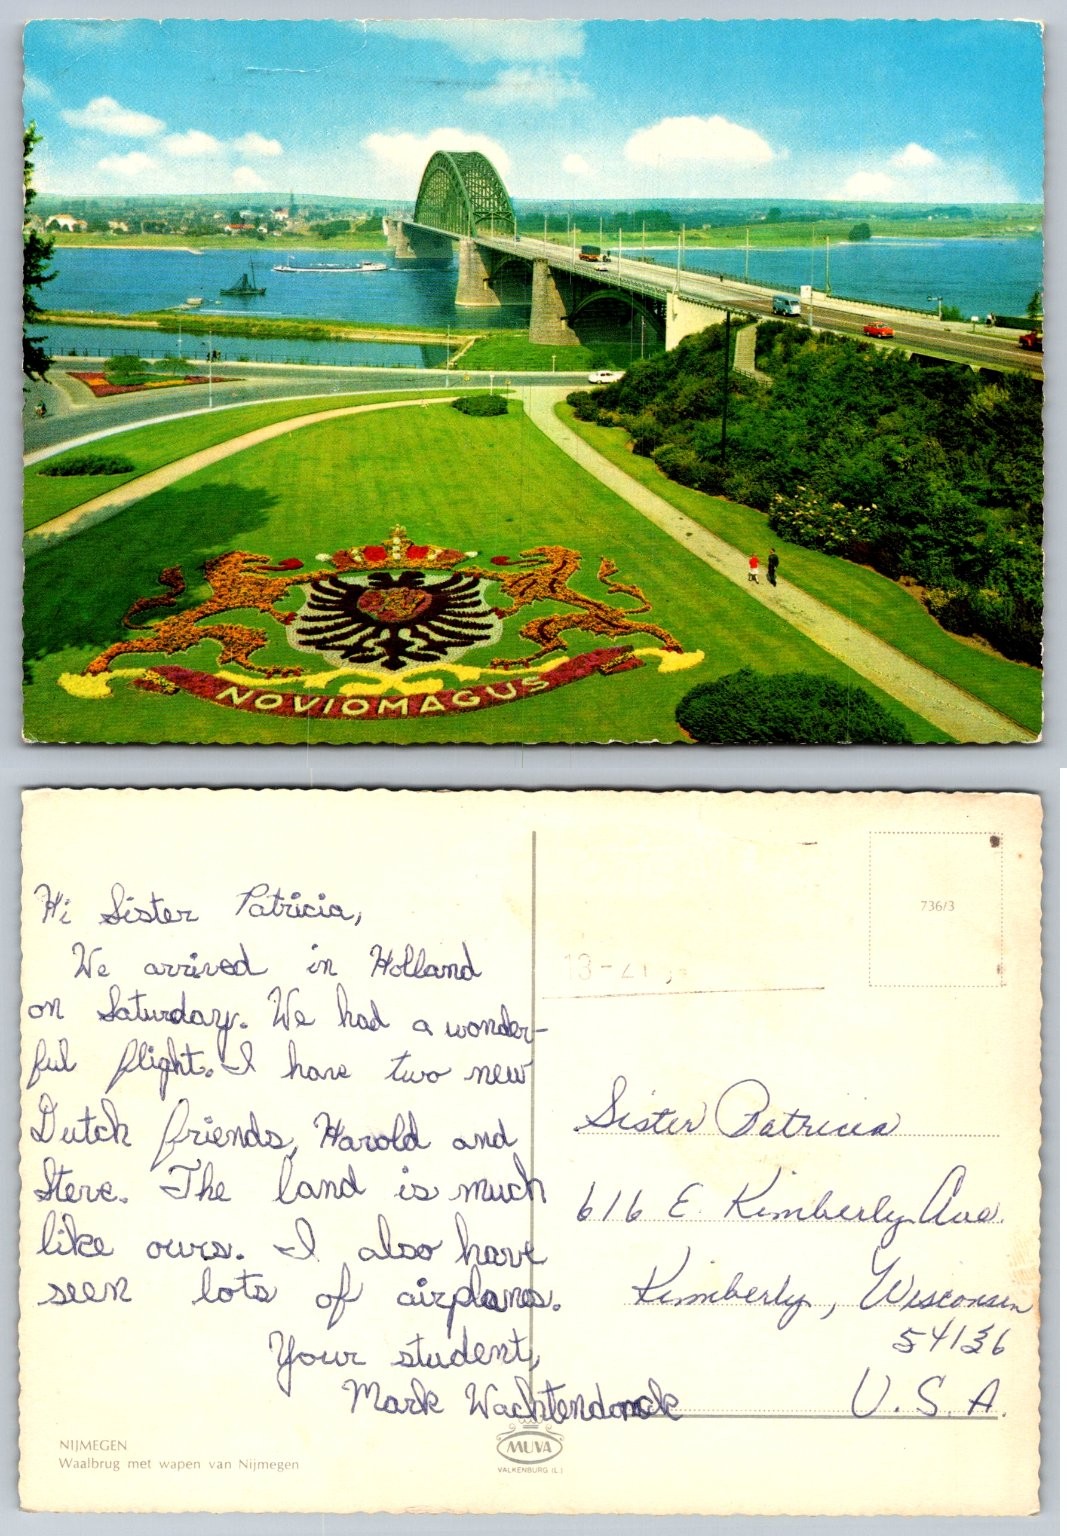 NOVIOMAGUS
Hi Sister Patricia,
We arrived in Holland
on Saturday. We had a wonder-
ful flight. I have two new
Dutch friends, Harold and
Steve. The land is much
like ours. I also have
seen lots of airplanes.
Your student,
Mark Wachtendonck
NIJMEGEN
Waalbrug met wapen van Nijmegen
MUVA
VALKENBURG (L.)
736/3
Sister Patricia
616 E. Kimberly Ave.
Kimberly, Wisconsin
54136
U. S. A.